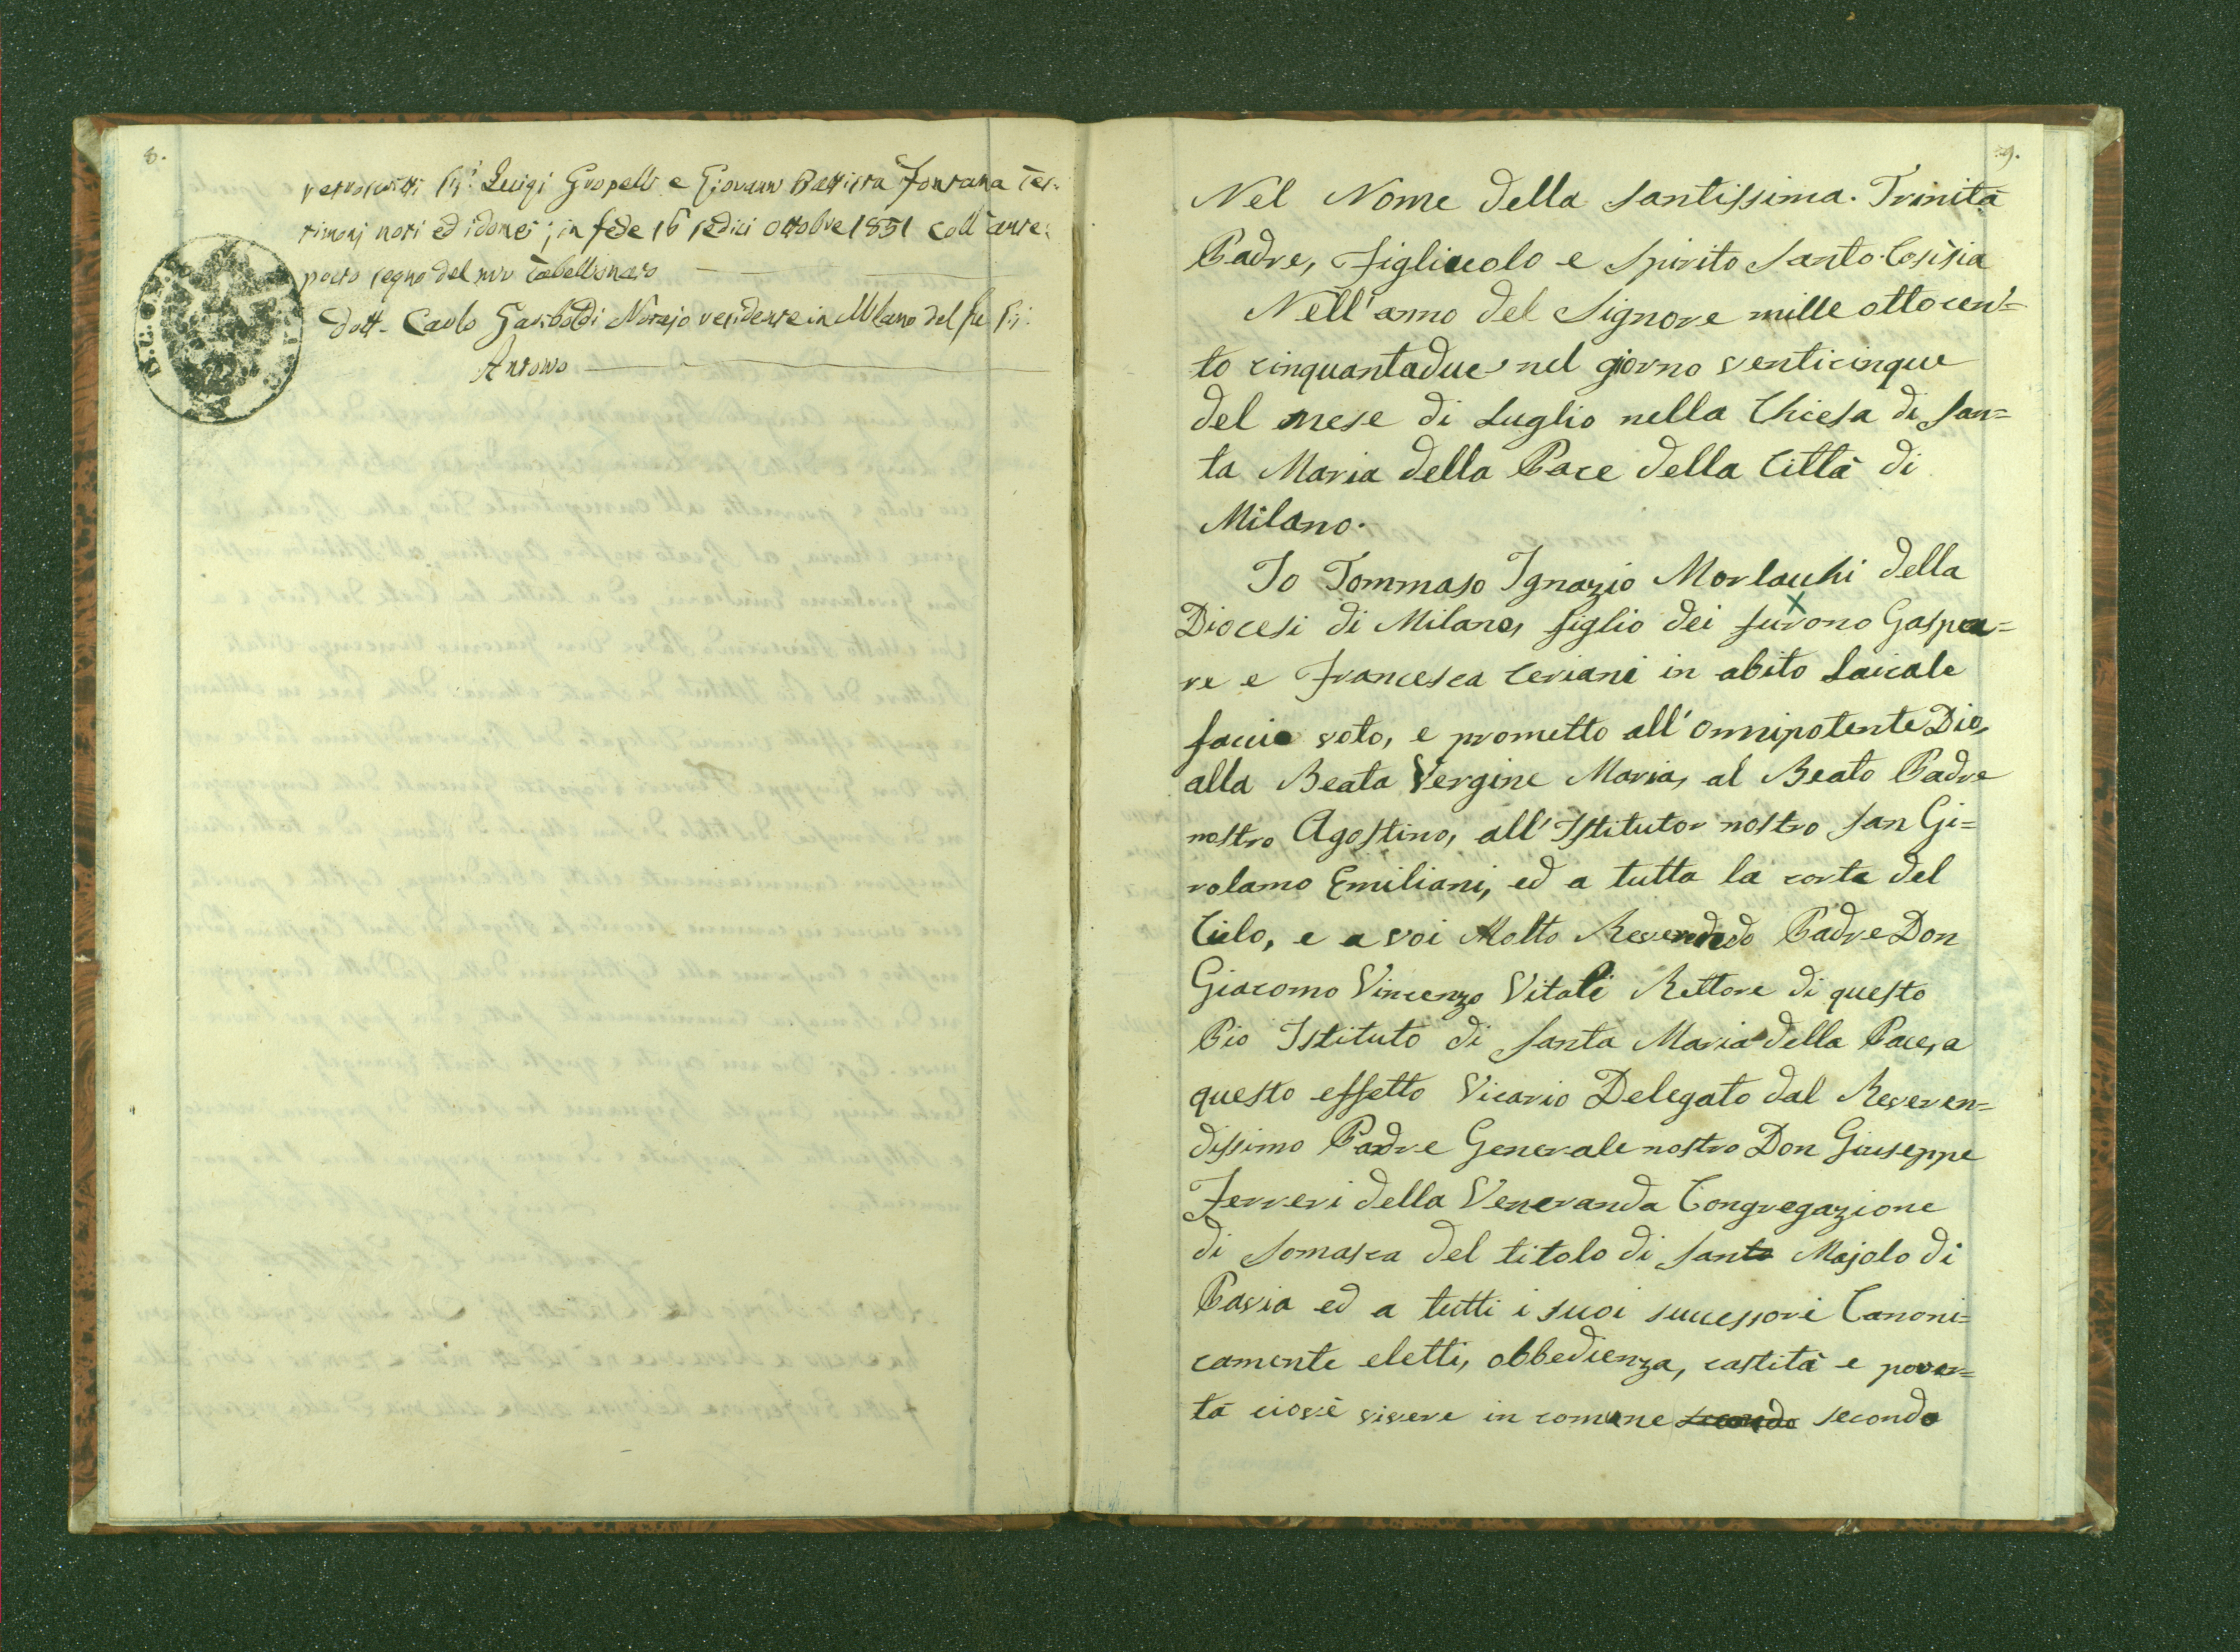 8.
retroscritti Sig.i Luigi Gropelli e Giovanni Battista Fontana tes=
timonj noti ed idonei; in fede 16 sedici ottobre 1851 coll'ante=
posto segno del mio Tabellionato
Dott. Carlo Gariboldi Notajo residente in Milano del fu Sig.
Antonio
9.
Nel Nome della Santissima. Trinità
Padre, Figliuolo e Spirito Santo. Così sia
Nell'anno del Signore mille ottocen=
to cinquantadue nel giorno venticinque
del mese di Luglio nella Chiesa di San=
ta Maria della Pace della Città di
Milano.
Io Tommaso Ignazio Morlacchi della
Diocesi di Milano, figlio dei furono Gaspa=
re e Francesca Ceriani in abito Laicale
faccio voto, e prometto all'Onnipotente Dio,
alla Beata Vergine Maria, al Beato Padre
nostro Agostino, all'Istitutor nostro San Gi=
rolamo Emiliani, ed a tutta la corte del
Cielo, e a voi Molto Reverendo Padre Don
Giacomo Vincenzo Vitali Rettore di questo
Pio Istituto di Santa Maria della Pace, a
questo effetto Vicario Delegato dal Reveren=
dissimo Padre Generale nostro Don Giuseppe
Ferreri della Veneranda Congregazione
di Somasca del titolo di Santo Majolo di
Pavia ed a tutti i suoi successori Canoni=
camente eletti, obbedienza, castità e pover=
tà cioè vivere in comune secondo secondo